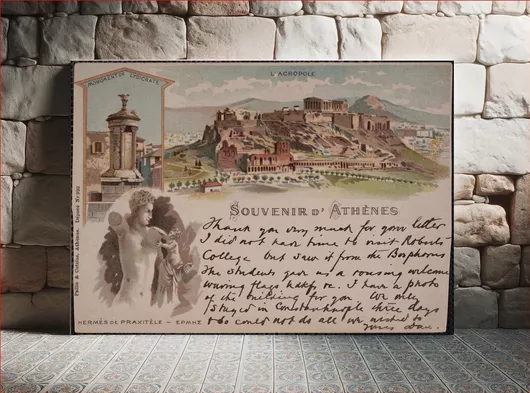 MONUMENT DE LYSICRATE
L'ACROPOLE
SOUVENIR D'ATHÈNES
Thank you very much for your letter
I did not have time to visit Roberts
College but saw it from the Bosphorus
The students gave us a rousing welcome
waving flags hdkfs &c. I have a photo
of the building for you We only
stayed in Constantinople three days
& so could not do all we wished to
yours
HERMÈS DE PRAXITÈLE — ΕΡΜΗΣ
Pallis & Cotzias, Athènes. Déposé No